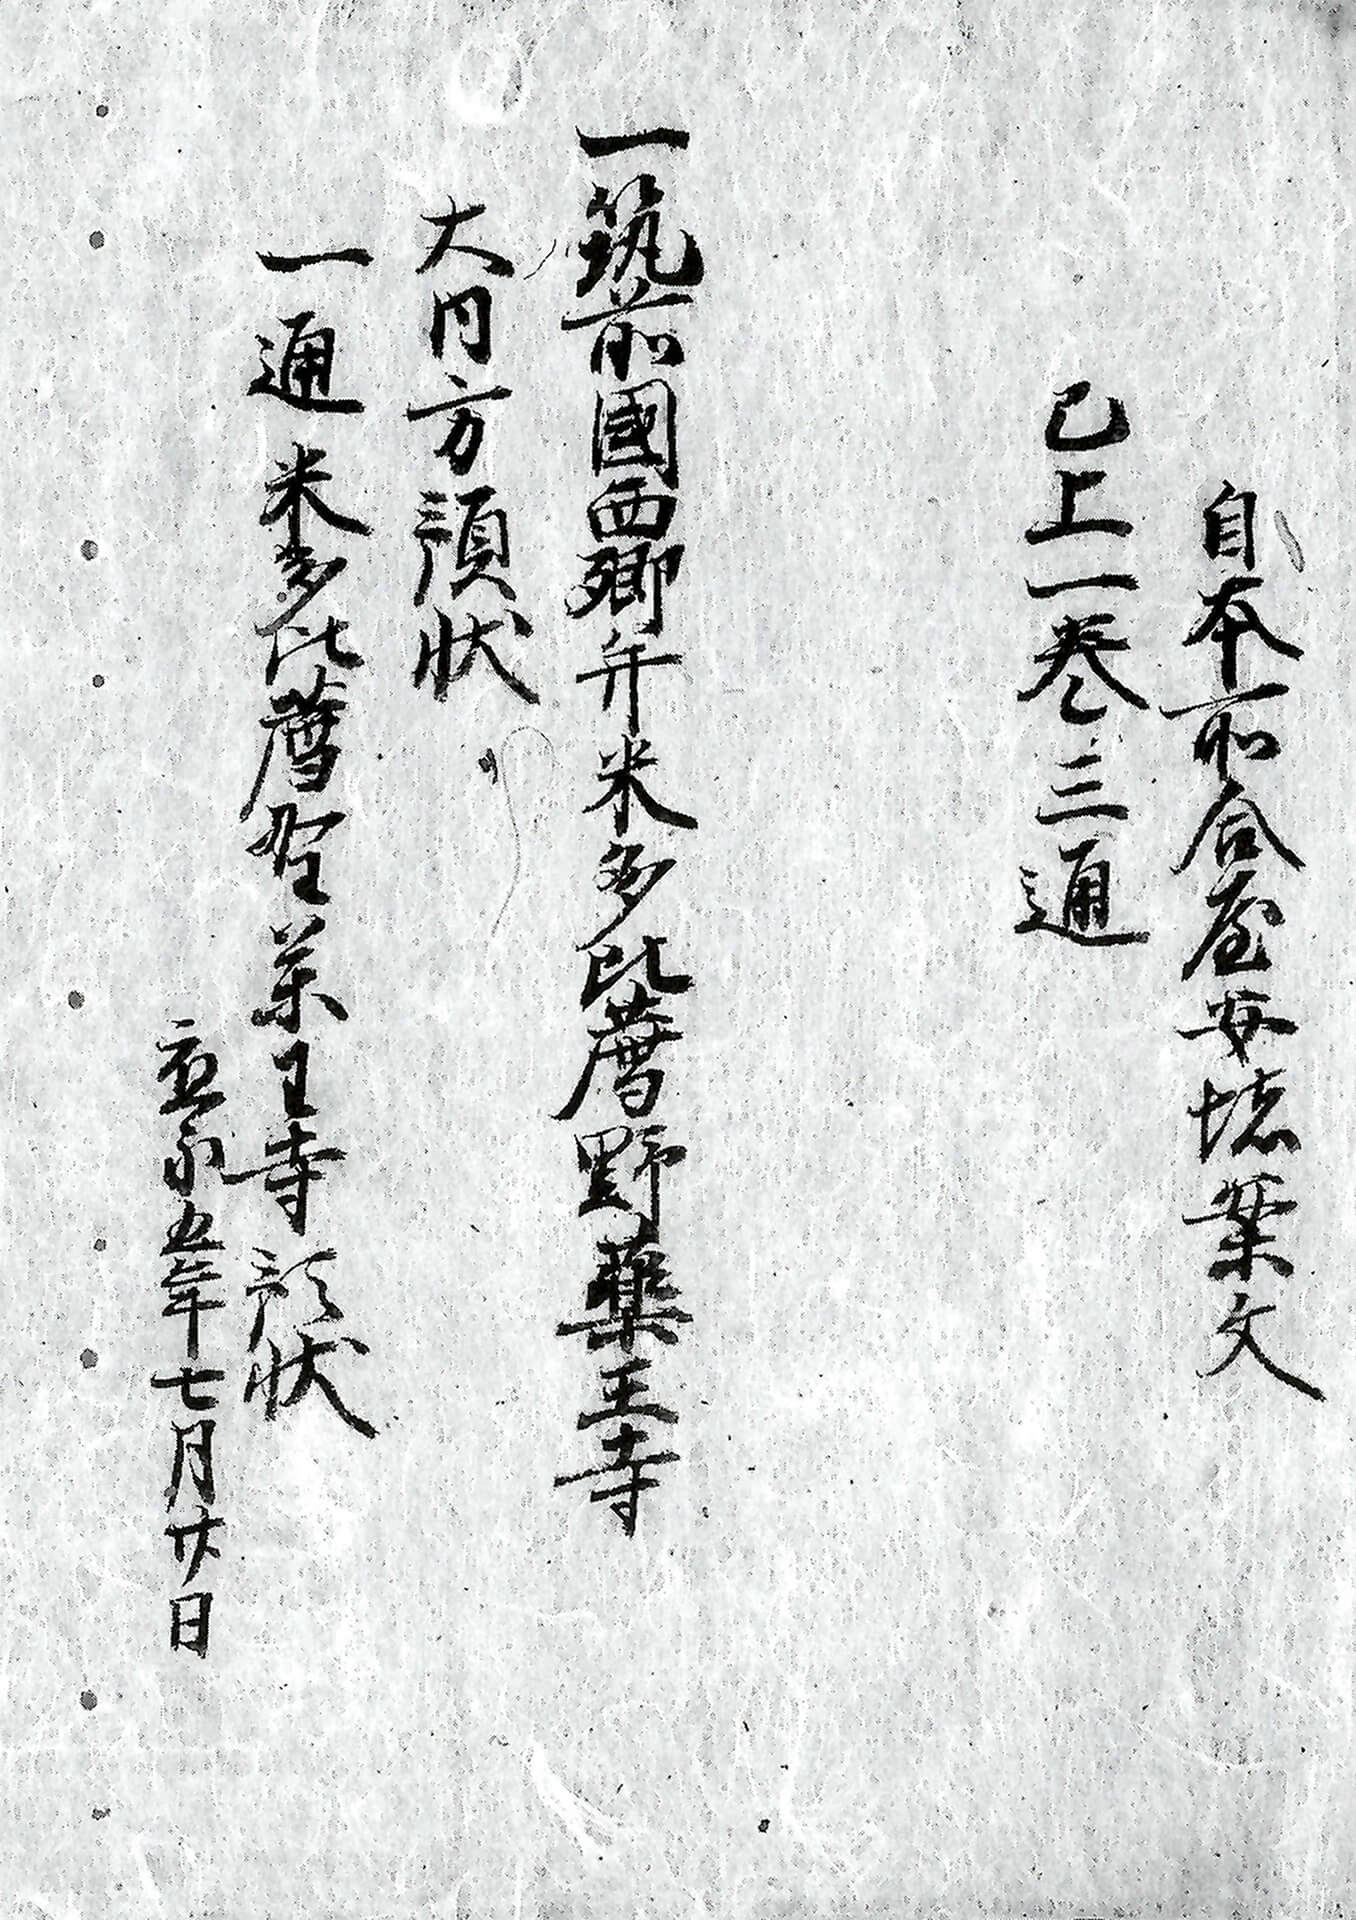 自本所合屋安堵案文
已上一巻三通
一筑前國西郷并米多比薦野薬王寺
大円方預状
一通米多比薦野薬王寺預状
應永五年七月廿日